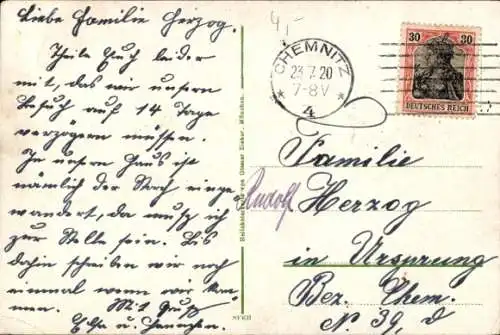 Liebe Familie Herzog.
Theile Euch leider
mit, das wir unsern
Besuch auf 14 Tage
verzögern müssen.
In unsern Haus ist
nämlich der Storch einge
wandert, da muß ich
zur Stelle sein. Bis
dahin schreiben wir noch
einmal wenn wir kom
men. Mit Gruß
u.
4,-
CHEMNITZ
23.7.20
7-8V
* 4 *
30 30
DEUTSCHES REICH
Familie
Rudolf Herzog
in Ursprung
Bez. Chem.
No 39 d